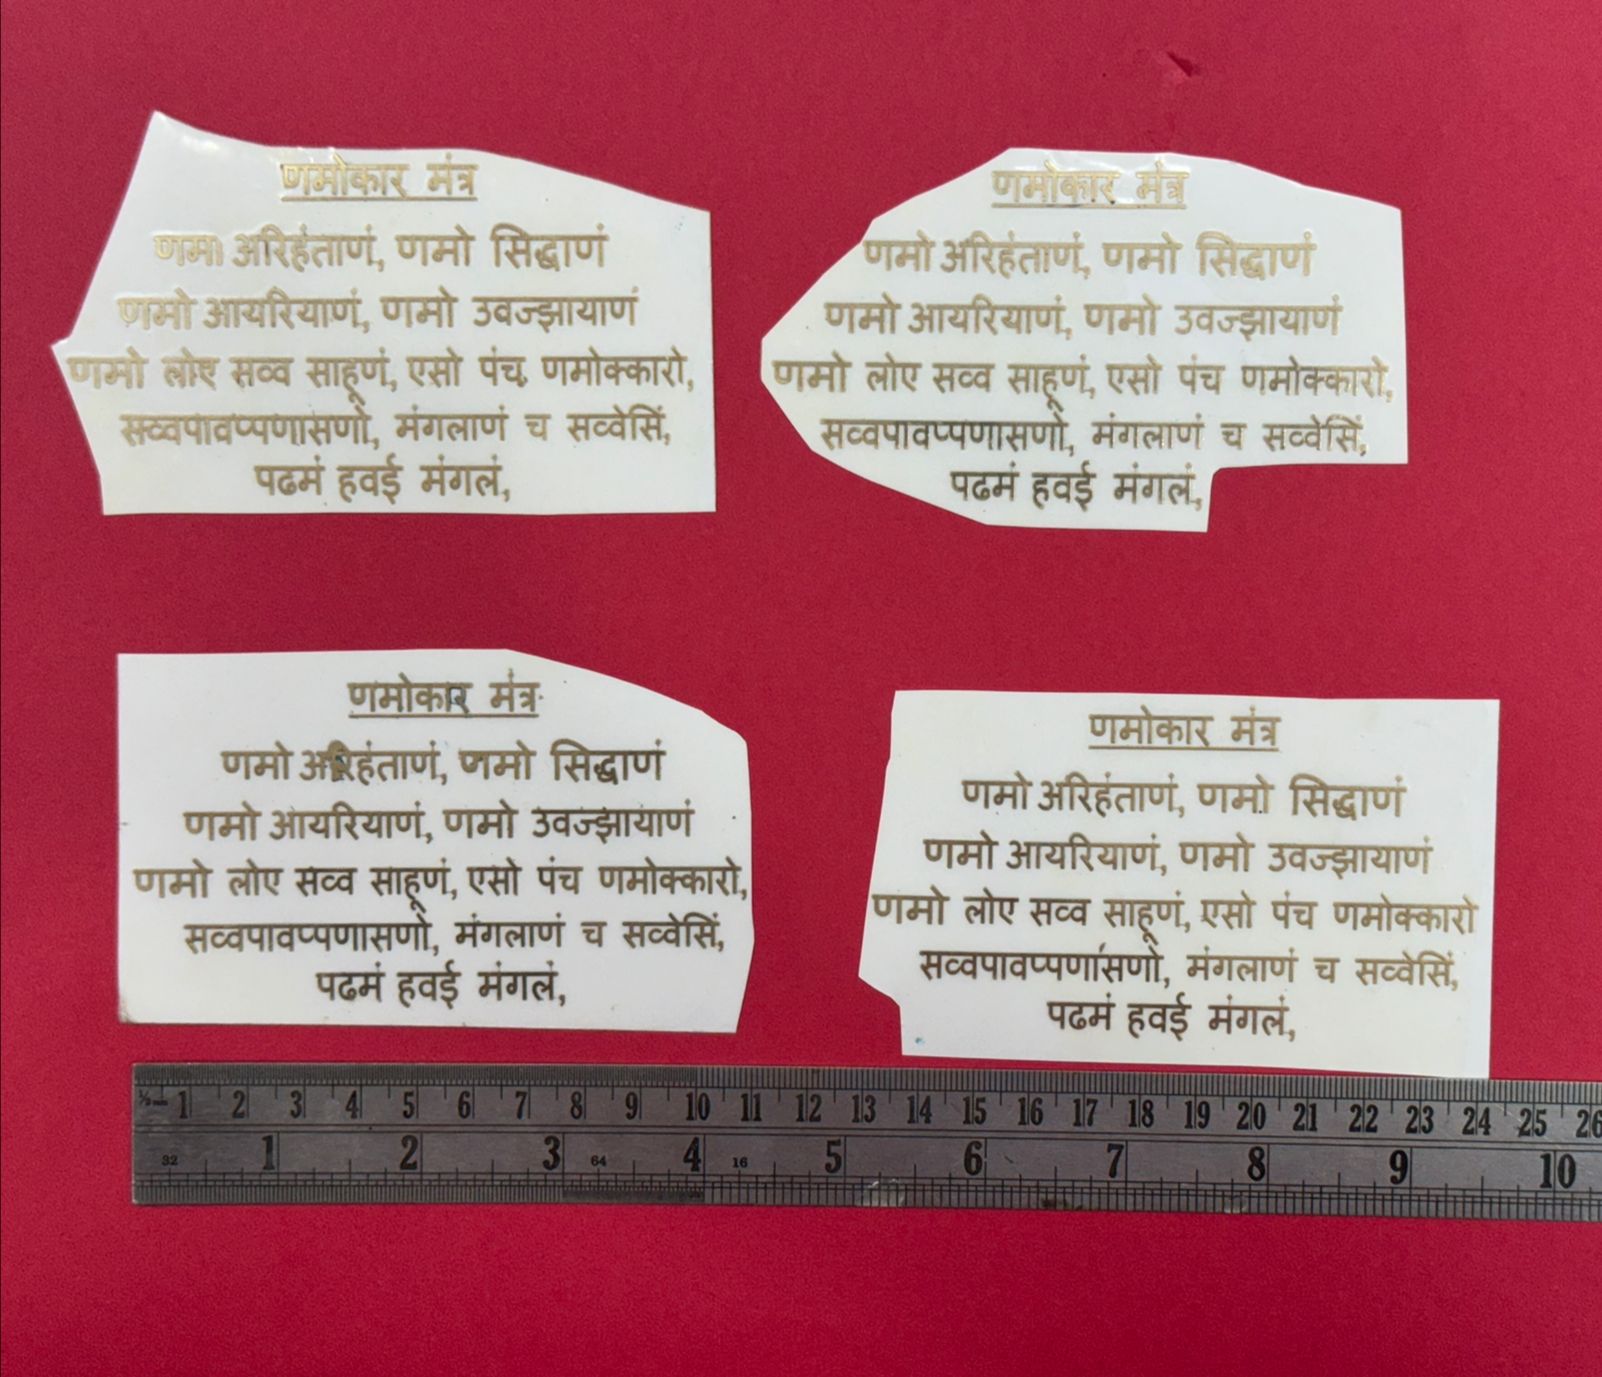 णमोकार मंत्र
णमो अरिहंताणं, णमो सिद्धाणं
णमो आयरियाणं, णमो उवज्झायाणं
णमो लोए सव्व साहूणं, एसो पंच णमोक्कारो,
सव्वपावप्पणासणो, मंगलाणं च सव्वेसिं,
पढमं हवई मंगलं,
णमोकार मंत्र
णमो अरिहंताणं, णमो सिद्धाणं
णमो आयरियाणं, णमो उवज्झायाणं
णमो लोए सव्व साहूणं, एसो पंच णमोक्कारो,
सव्वपावप्पणासणो, मंगलाणं च सव्वेसिं,
पढमं हवई मंगलं,
णमोकार मंत्र
णमो अरिहंताणं, णमो सिद्धाणं
णमो आयरियाणं, णमो उवज्झायाणं
णमो लोए सव्व साहूणं, एसो पंच णमोक्कारो,
सव्वपावप्पणासणो, मंगलाणं च सव्वेसिं,
पढमं हवई मंगलं,
णमोकार मंत्र
णमो अरिहंताणं, णमो सिद्धाणं
णमो आयरियाणं, णमो उवज्झायाणं
णमो लोए सव्व साहूणं, एसो पंच णमोक्कारो
सव्वपावप्पणासणो, मंगलाणं च सव्वेसिं,
पढमं हवई मंगलं,
½ 1 2 3 4 5 6 7 8 9 10 11 12 13 14 15 16 17 18 19 20 21 22 23 24 25 26
32 1 2 3 64 4 16 5 6 7 8 9 10